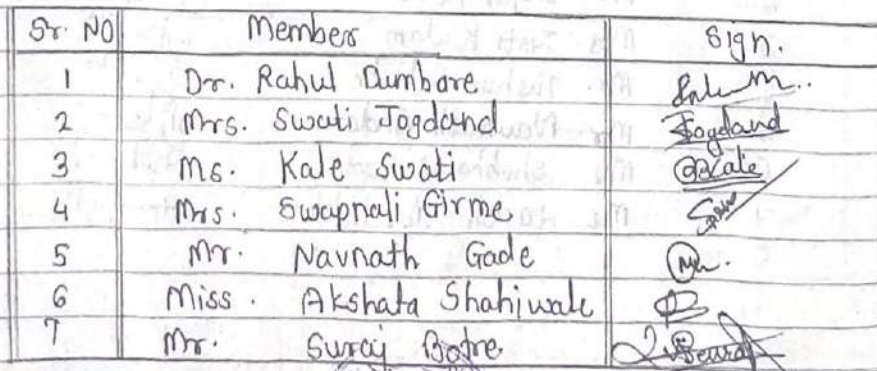 Sr. NO Member Sign.
1 Dr. Rahul Dumbare
2 Mrs. Swati Jogdand Jogdand
3 Ms. Kale Swati Kale
4 Mrs. Swapnali Girme
5 Mr. Navnath Gade
6 Miss. Akshata Shahiwale
7 Mr. Suraj Botre